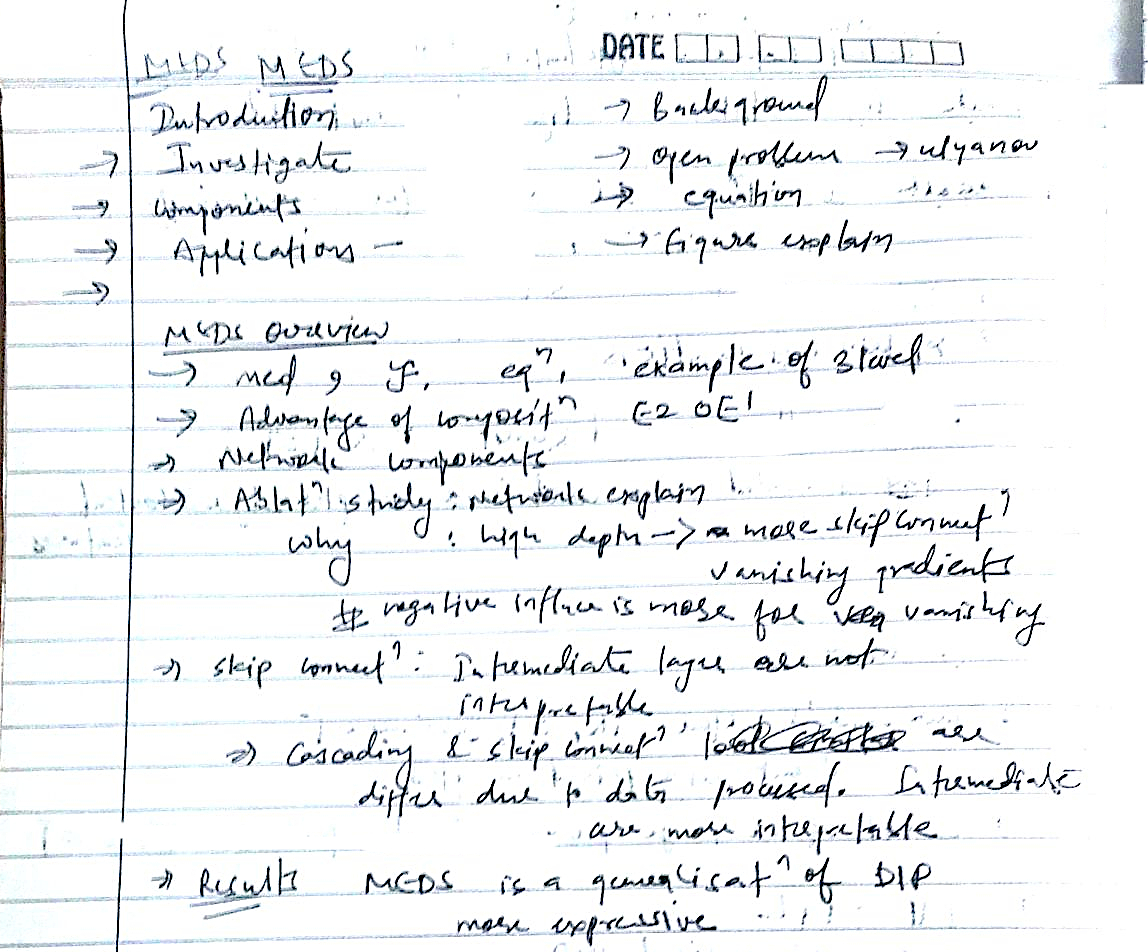 DATE
MEDS MEDS
Introduction → Background
→ Investigate → open problem → ulyanov
→ components → equation
→ Applications – → figure explain
→
MEDS overview
→ med , eqⁿ, example of 3 level
→ Advantage of compositⁿ E2 o E1
→ Network components
→ Ablatⁿ study : Network explain
why : high depth → more skip connectⁿ
vanishing gradients
# negative influce is more for vanishing
→ skip connectⁿ : Intermediate layer are not
interpretable
⇒ Cascading & skip connectⁿ are
differ due to data processed. Intermediate
are more intrepretable
→ Results MEDS is a generalisatⁿ of DIP
more expressive